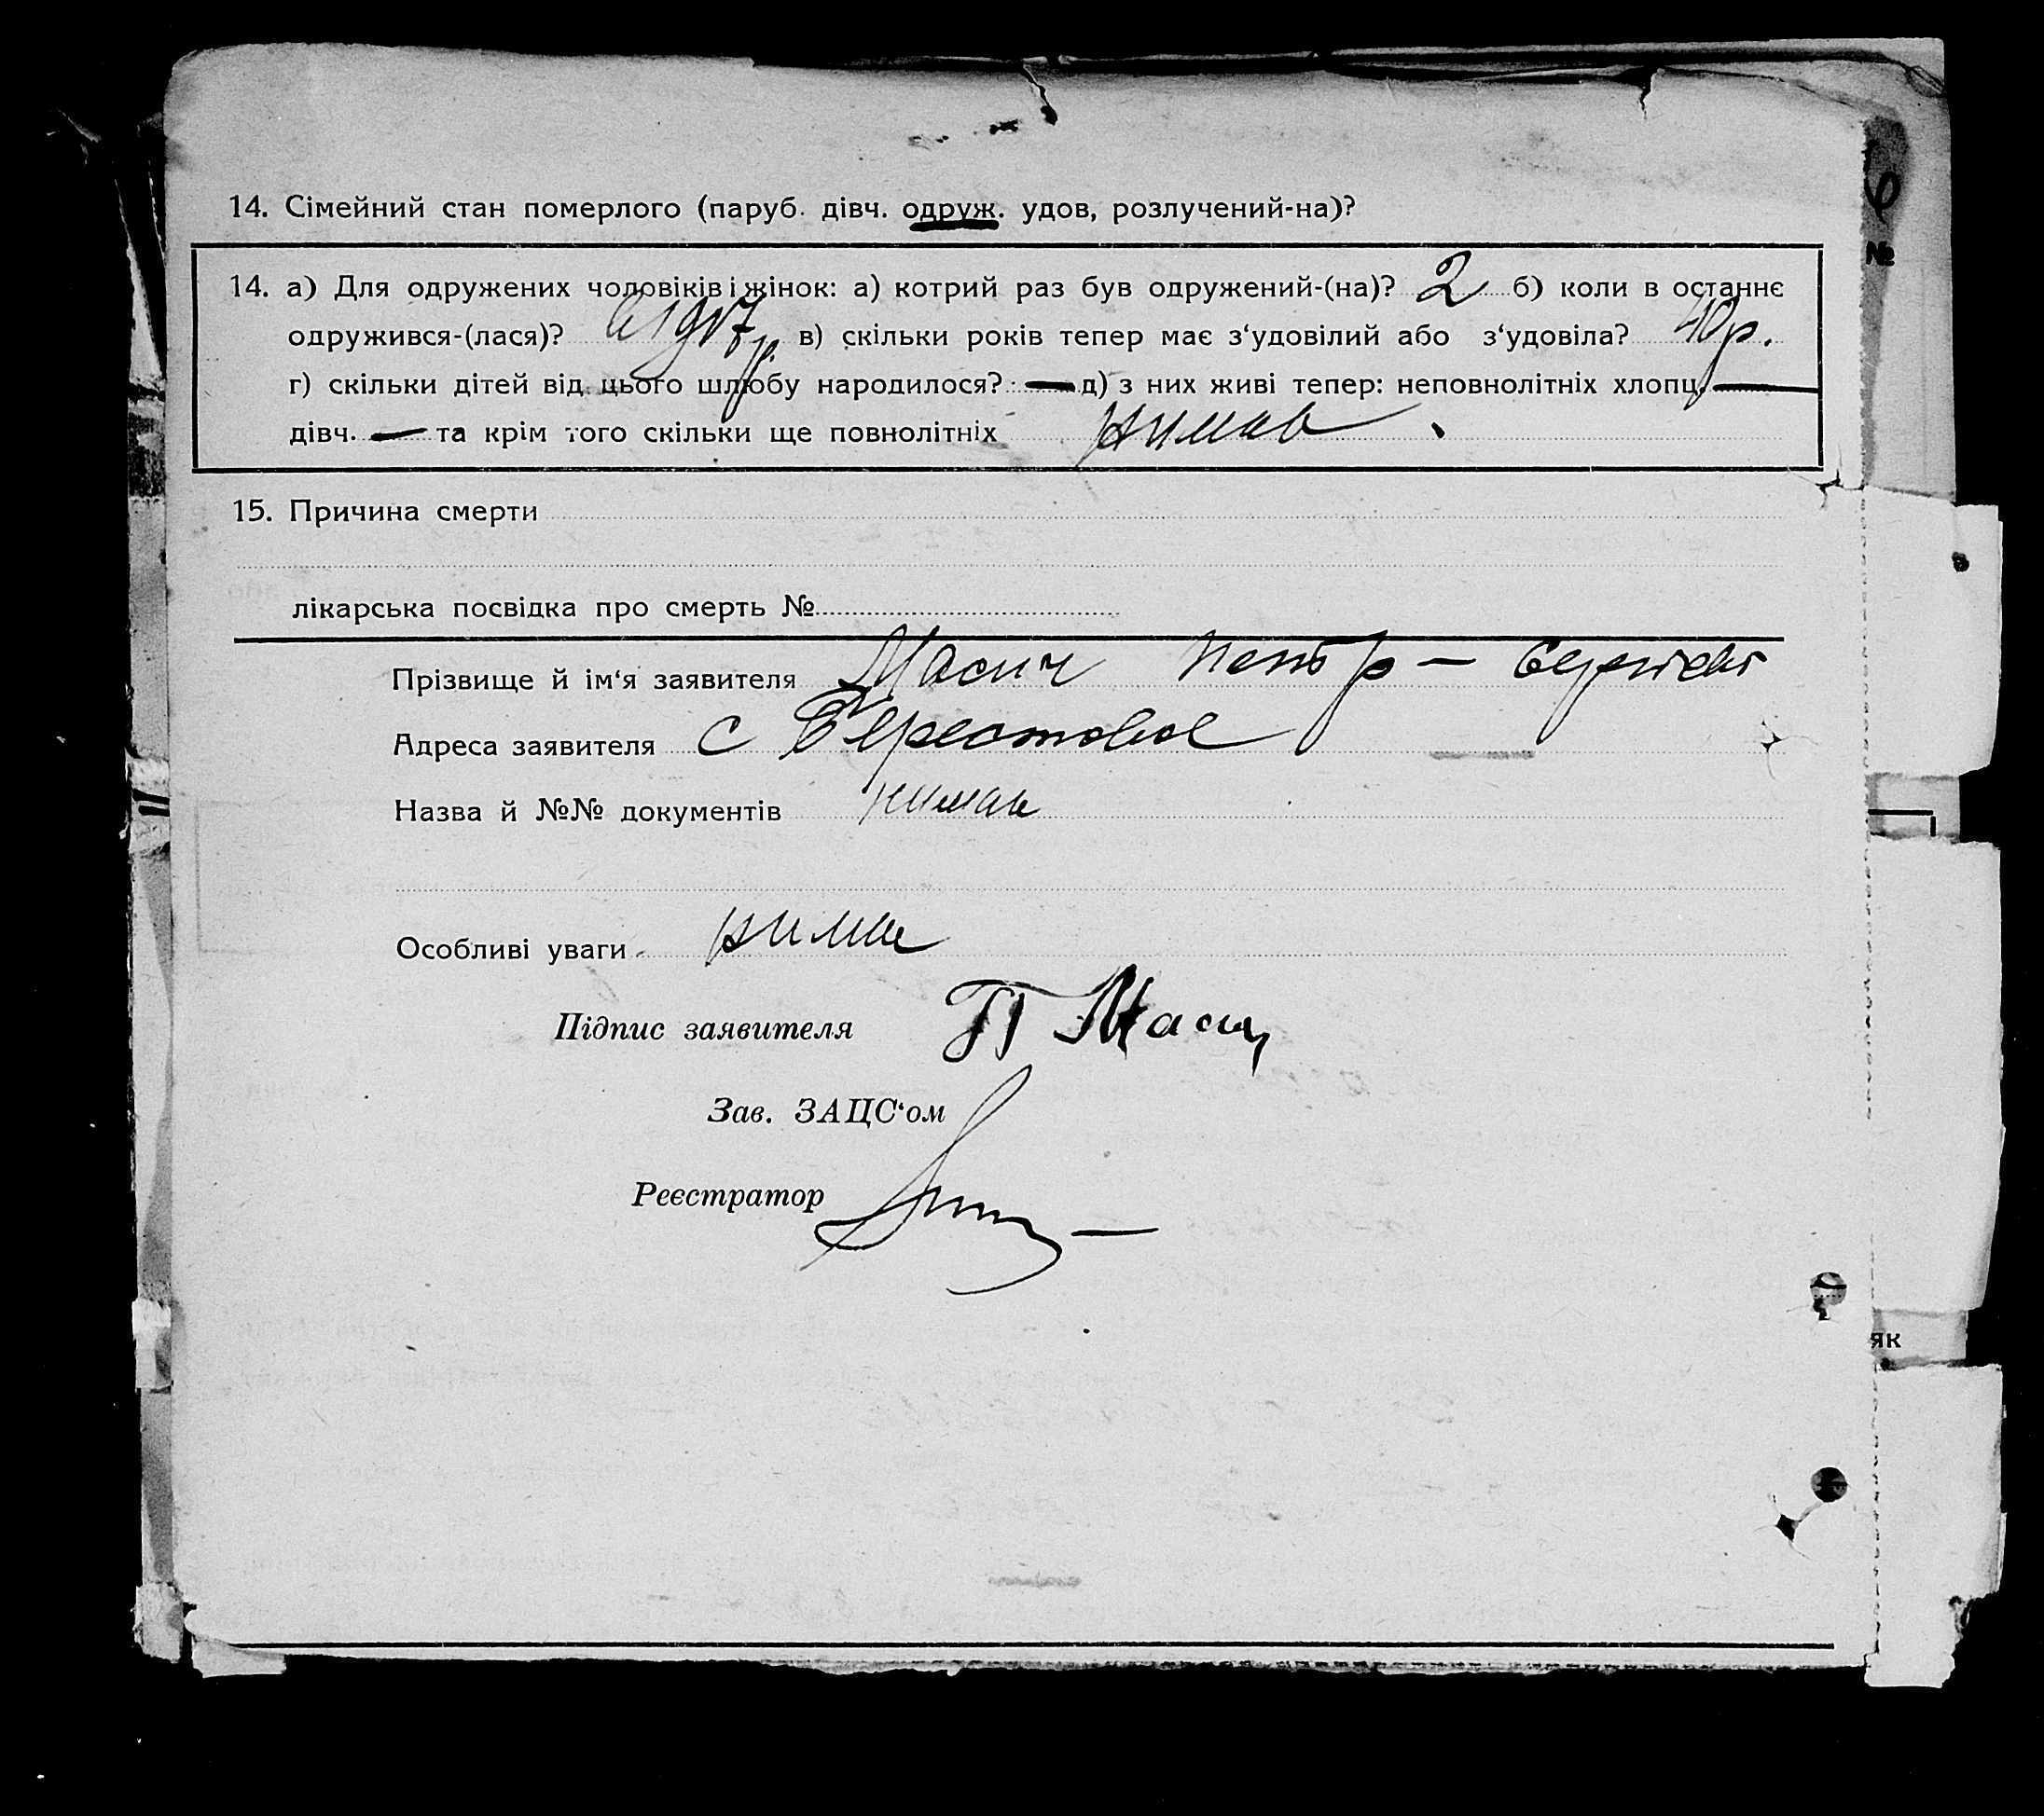 14. Сімейний стан померлого (паруб. дівч. одруж. удов, розлучений-на)?
14. а) Для одружених чоловіків і жінок: а) котрий раз був одружений-(на)? 2 б) коли в останнє
одружився-(лася)? в) скільки років тепер має з‘удовілий або з‘удовіла? 40 р.
г) скільки дітей від цього шлюбу народилося? — д) з них живі тепер: неповнолітніх хлопц. —
дівч. — та крім того скільки ще повнолітніх нимає.
15. Причина смерти
лікарська посвідка про смерть №
Прізвище й ім‘я заявителя Масич Петр —
Адреса заявителя с Берестовое
Назва й №№ документів нимає
Особливі уваги нимає
Підпис заявителя П Масич
Зав. ЗАЦС‘ом
Реєстратор
№
як